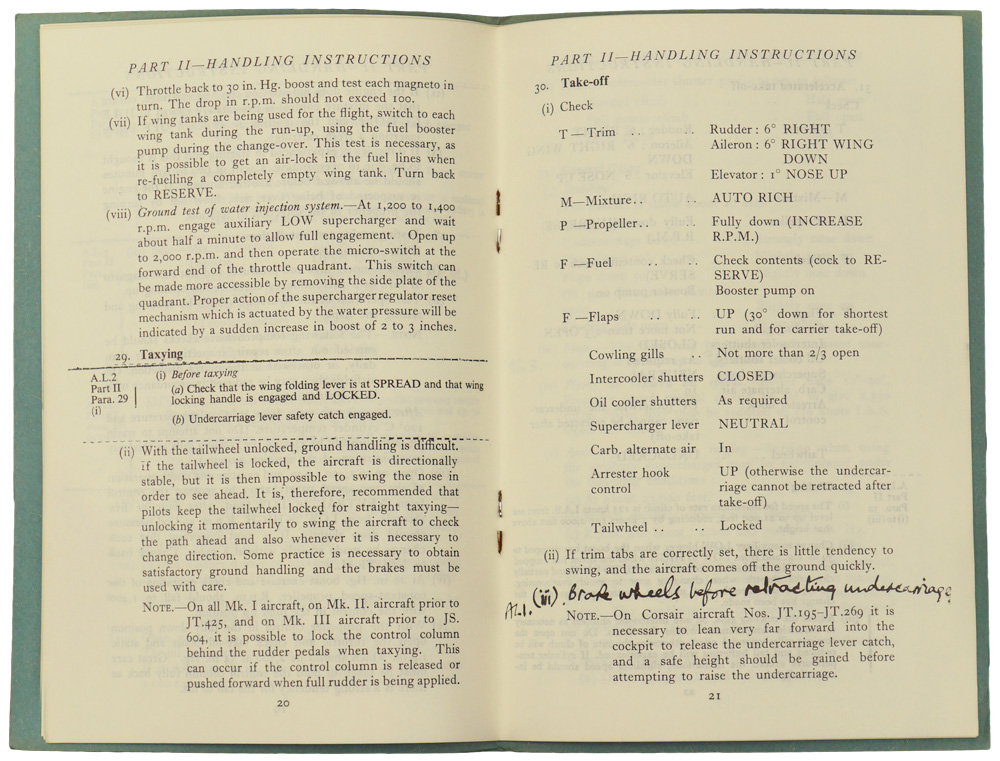 PART II—HANDLING INSTRUCTIONS
(vi) Throttle back to 30 in. Hg. boost and test each magneto in
turn. The drop in r.p.m. should not exceed 100.
(vii) If wing tanks are being used for the flight, switch to each
wing tank during the run-up, using the fuel booster
pump during the change-over. This test is necessary, as
it is possible to get an air-lock in the fuel lines when
re-fuelling a completely empty wing tank. Turn back
to RESERVE.
(viii) Ground test of water injection system.—At 1,200 to 1,400
r.p.m. engage auxiliary LOW supercharger and wait
about half a minute to allow full engagement. Open up
to 2,000 r.p.m. and then operate the micro-switch at the
forward end of the throttle quadrant. This switch can
be made more accessible by removing the side plate of the
quadrant. Proper action of the supercharger regulator reset
mechanism which is actuated by the water pressure will be
indicated by a sudden increase in boost of 2 to 3 inches.
29. Taxying
A.L.2
Part II
Para. 29
(i)
(i) Before taxying
(a) Check that the wing folding lever is at SPREAD and that wing
locking handle is engaged and LOCKED.
(b) Undercarriage lever safety catch engaged.
(ii) With the tailwheel unlocked, ground handling is difficult.
If the tailwheel is locked, the aircraft is directionally
stable, but it is then impossible to swing the nose in
order to see ahead. It is, therefore, recommended that
pilots keep the tailwheel locked for straight taxying—
unlocking it momentarily to swing the aircraft to check
the path ahead and also whenever it is necessary to
change direction. Some practice is necessary to obtain
satisfactory ground handling and the brakes must be
used with care.
NOTE.—On all Mk. I aircraft, on Mk. II. aircraft prior to
JT.425, and on Mk. III aircraft prior to JS.
604, it is possible to lock the control column
behind the rudder pedals when taxying. This
can occur if the control column is released or
pushed forward when full rudder is being applied.
20
PART II—HANDLING INSTRUCTIONS
30. Take-off
(i) Check
T—Trim .. .. Rudder: 6° RIGHT
Aileron: 6° RIGHT WING
DOWN
Elevator: 1° NOSE UP
M—Mixture.. .. AUTO RICH
P—Propeller.. .. Fully down (INCREASE
R.P.M.)
F—Fuel .. .. Check contents (cock to RE-
SERVE)
Booster pump on
F—Flaps .. .. UP (30° down for shortest
run and for carrier take-off)
Cowling gills .. Not more than 2/3 open
Intercooler shutters CLOSED
Oil cooler shutters As required
Supercharger lever NEUTRAL
Carb. alternate air In
Arrester hook UP (otherwise the undercar-
control riage cannot be retracted after
take-off)
Tailwheel .. .. Locked
(ii) If trim tabs are correctly set, there is little tendency to
swing, and the aircraft comes off the ground quickly.
A.L.1. (iii) Brake wheels before retracting undercarriage
NOTE.—On Corsair aircraft Nos. JT.195–JT.269 it is
necessary to lean very far forward into the
cockpit to release the undercarriage lever catch,
and a safe height should be gained before
attempting to raise the undercarriage.
21